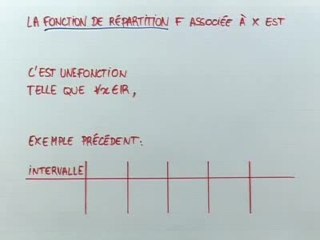 LA FONCTION DE RÉPARTITION F ASSOCIÉE À X EST
C'EST UNE FONCTION
TELLE QUE ∀x∈IR,
EXEMPLE PRÉCÉDENT:
INTERVALLE